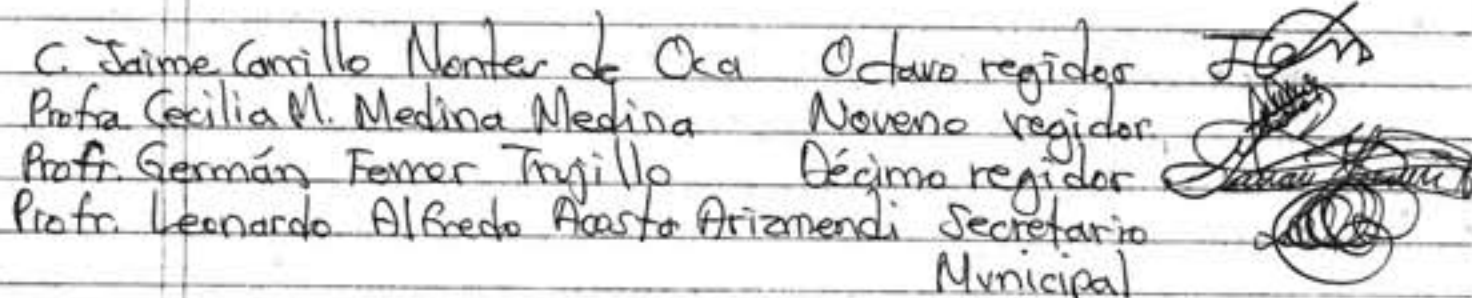 C. Jaime Carrillo Montes de Oca Octavo regidor
Profra Cecilia M. Medina Medina Noveno regidor
Profr. Germán Ferrer Trujillo Décimo regidor
Profr. Leonardo Alfredo Acosta Arizmendi Secretario
Municipal